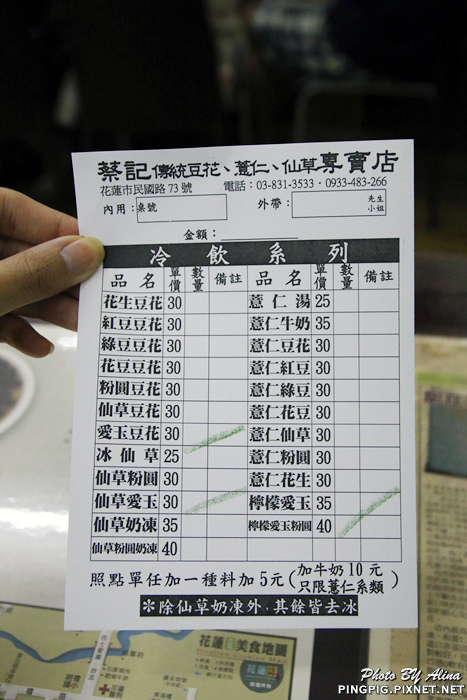 蔡記傳統豆花、薏仁、仙草專賣店
花蓮市民國路73號 電話：03-831-3533・0933-483-266
內用：桌號 外帶： 先生 小姐
金額：
冷飲系列
品名 單價 數量 備註 品名 單價 數量 備註
花生豆花 30 薏仁湯 25
紅豆豆花 30 薏仁牛奶 35
綠豆豆花 30 薏仁豆花 30
花豆豆花 30 薏仁紅豆 30
粉圓豆花 30 薏仁綠豆 30
仙草豆花 30 薏仁花豆 30
愛玉豆花 30 薏仁仙草 30
冰仙草 25 薏仁粉圓 30
仙草粉圓 30 薏仁花生 30
仙草愛玉 30 檸檬愛玉 35
仙草奶凍 35 檸檬愛玉粉圓 40
仙草粉圓奶凍 40
照點單任加一種料加5元(加牛奶10元 只限薏仁系類)
*除仙草奶凍外,其餘皆去冰
花蓮美食地圖
花蓮
Photo BY Alina
PINGPIG.PIXNET.NET